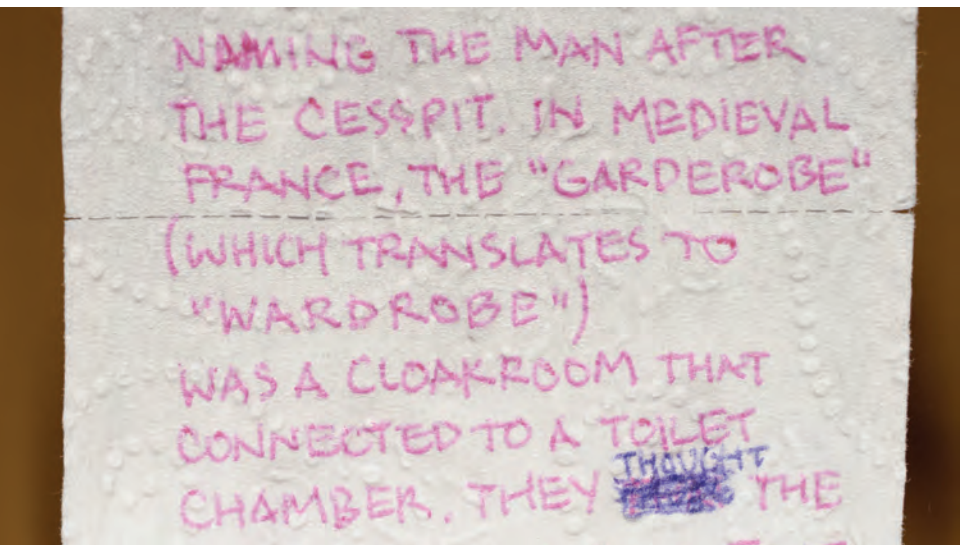 NAMING THE MAN AFTER
THE CESSPIT. IN MEDIEVAL
FRANCE, THE "GARDEROBE"
(WHICH TRANSLATES TO
"WARDROBE")
WAS A CLOAKROOM THAT
CONNECTED TO A TOILET
CHAMBER. THEY THOUGHT THE